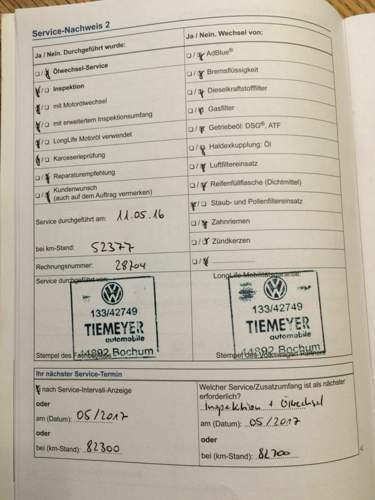 Service-Nachweis 2
Ja / Nein. Durchgeführt wurde:
Ölwechsel-Service
Inspektion
mit Motorölwechsel
mit erweitertem Inspektionsumfang
LongLife Motoröl verwendet
Karosserieprüfung
Reparaturempfehlung
Kundenwunsch
(auch auf dem Auftrag vermerken)
Service durchgeführt am: 11.05.16
bei km-Stand: 52377
Rechnungsnummer: 28704
Ja / Nein. Wechsel von:
AdBlue®
Bremsflüssigkeit
Dieselkraftstofffilter
Gasfilter
Getriebeöl: DSG®, ATF
Haldexkupplung: Öl
Luftfiltereinsatz
Reifenfüllflasche (Dichtmittel)
Staub- und Pollenfiltereinsatz
Zahnriemen
Zündkerzen
Service durchgeführt von:
133/42749
TIEMEYER
automobile
44892 Bochum
Stempel des Fachbetriebs
LongLife Mobilitätsgarantie:
133/42749
TIEMEYER
automobile
44892 Bochum
Stempel des Volkswagen Partners
Ihr nächster Service-Termin
nach Service-Intervall-Anzeige
oder
am (Datum): 05/2017
oder
bei (km-Stand): 82300
Welcher Service/Zusatzumfang ist als nächster
erforderlich?
Inspektion + Ölwechsel
am (Datum): 05/2017
oder
bei (km-Stand):